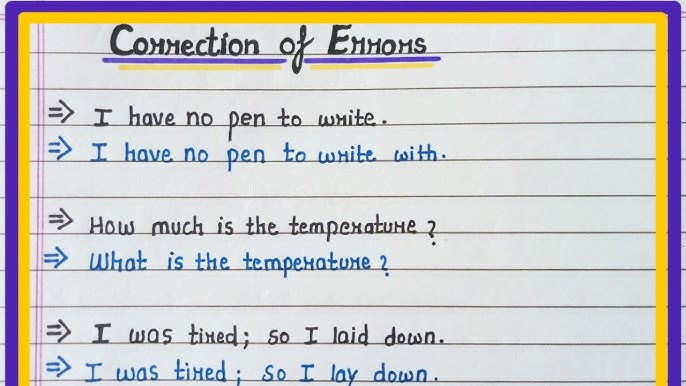 Correction of Errors
⇒ I have no pen to write.
⇒ I have no pen to write with.
⇒ How much is the temperature?
⇒ What is the temperature?
⇒ I was tired; so I laid down.
⇒ I was tired; so I lay down.